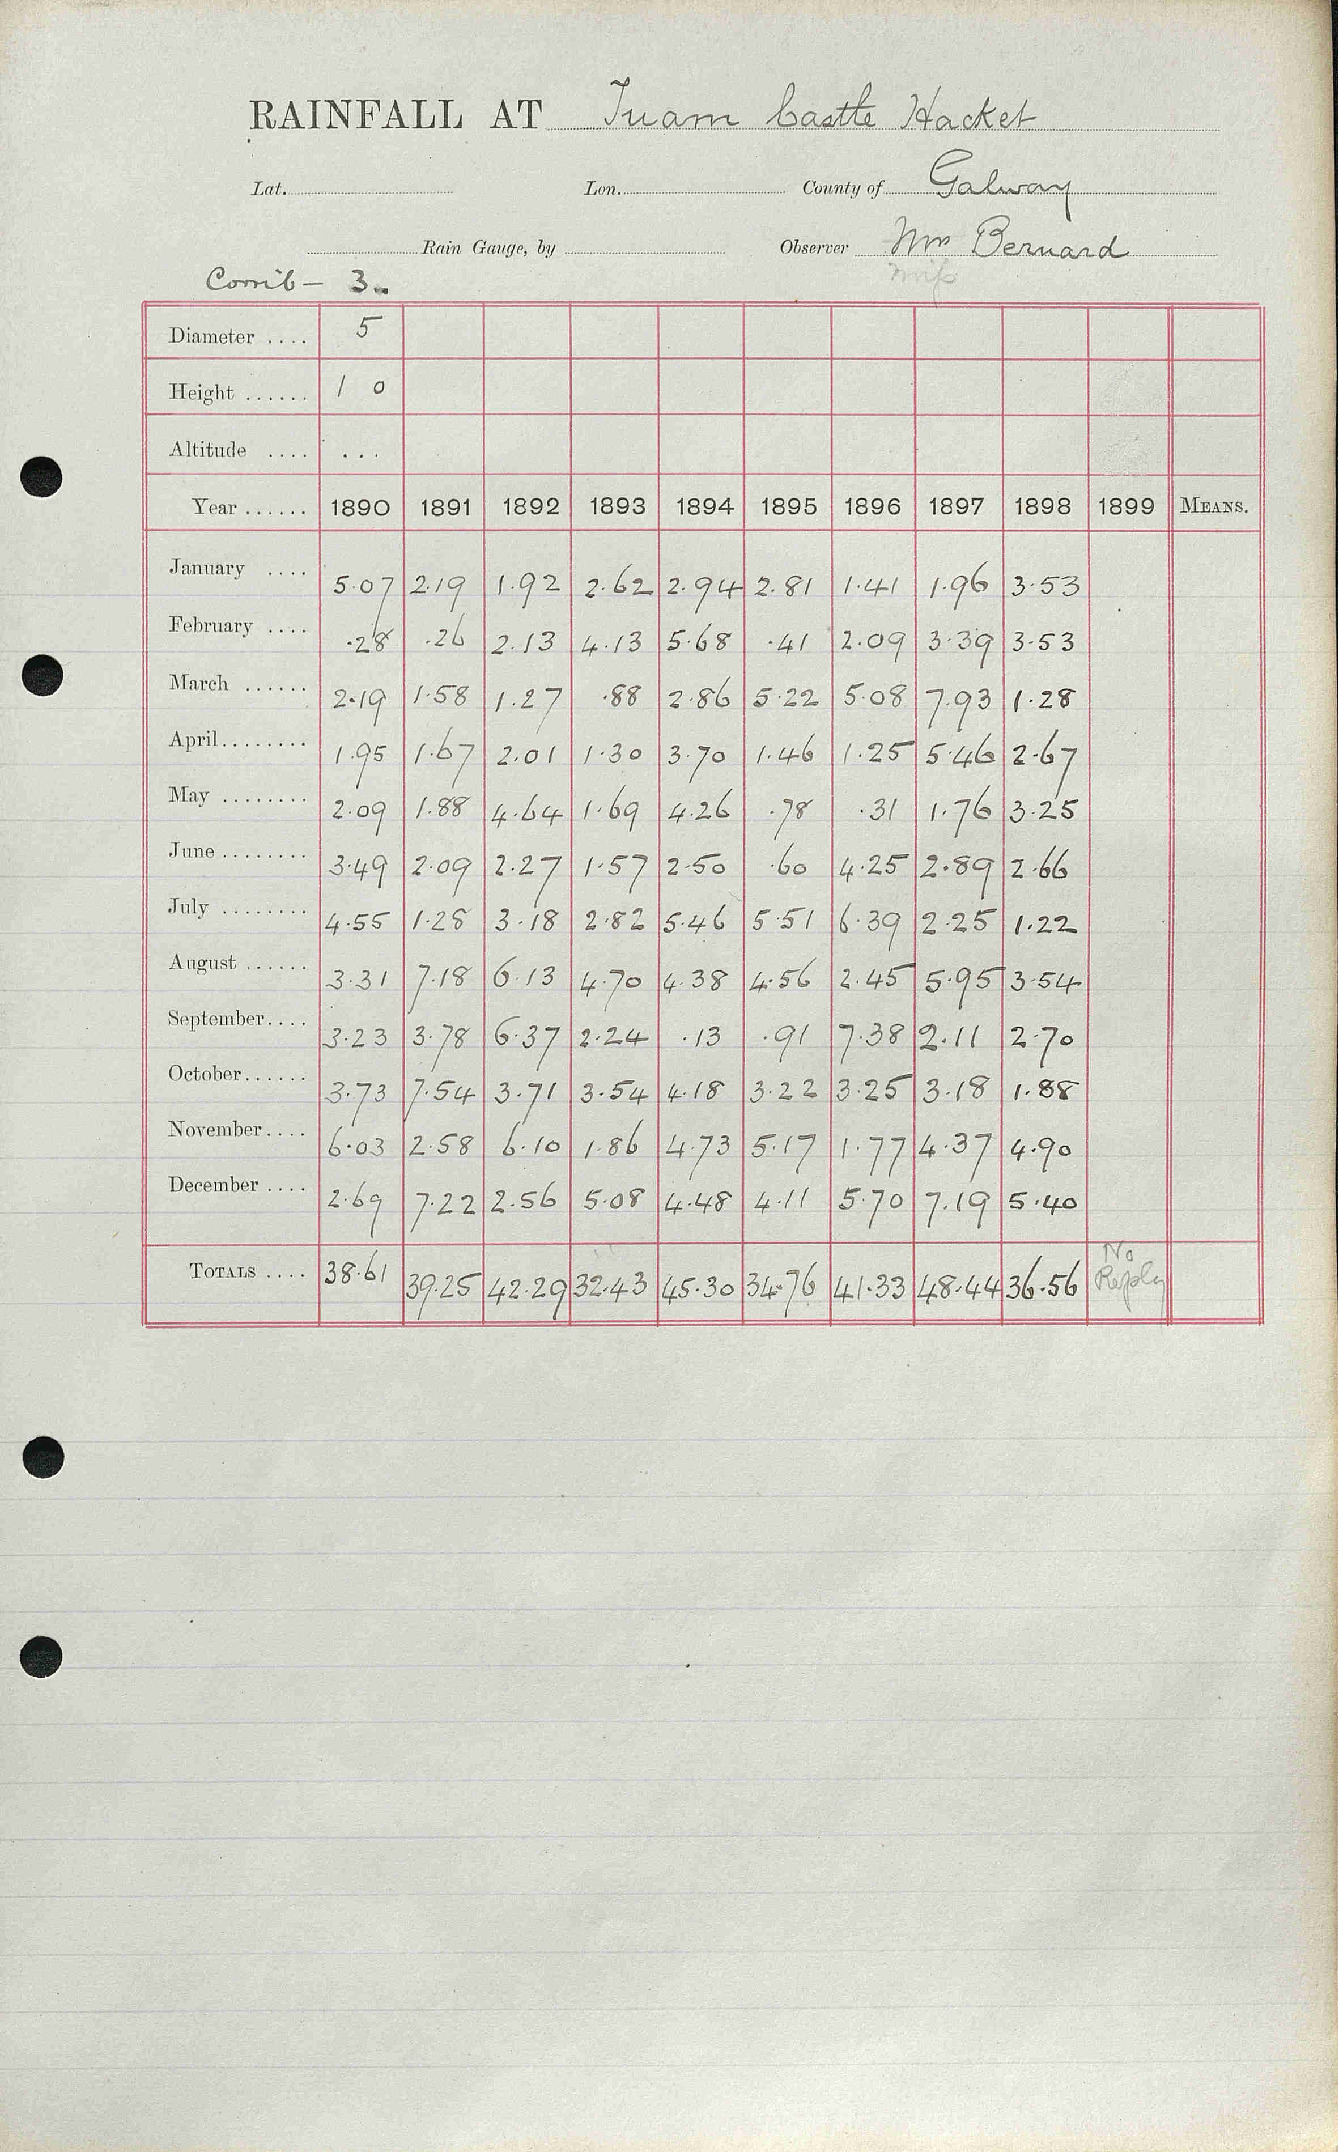 RAINFALL AT Tuam Castle Hacket
Lat. Lon. County of Galway
Rain Gauge, by Observer Mrs Bernard
Corrib - 3. Miss
Diameter .... 5
Height ...... 1 0
Altitude .... ...
Year ...... 1890 1891 1892 1893 1894 1895 1896 1897 1898 1899 MEANS.
January .... 5.07 2.19 1.92 2.62 2.94 2.81 1.41 1.96 3.53
February .... .28 .26 2.13 4.13 5.68 .41 2.09 3.39 3.53
March ...... 2.19 1.58 1.27 .88 2.86 5.22 5.08 7.93 1.28
April........ 1.95 1.67 2.01 1.30 3.70 1.46 1.25 5.46 2.67
May ........ 2.09 1.88 4.64 1.69 4.26 .78 .31 1.76 3.25
June ........ 3.49 2.09 2.27 1.57 2.50 .60 4.25 2.89 2.66
July ........ 4.55 1.28 3.18 2.82 5.46 5.51 6.39 2.25 1.22
August ...... 3.31 7.18 6.13 4.70 4.38 4.56 2.45 5.95 3.54
September.... 3.23 3.78 6.37 2.24 .13 .91 7.38 2.11 2.70
October...... 3.73 7.54 3.71 3.54 4.18 3.22 3.25 3.18 1.88
November.... 6.03 2.58 6.10 1.86 4.73 5.17 1.77 4.37 4.90
December .... 2.69 7.22 2.56 5.08 4.48 4.11 5.70 7.19 5.40
TOTALS .... 38.61 39.25 42.29 32.43 45.30 34.76 41.33 48.44 36.56 No Reply